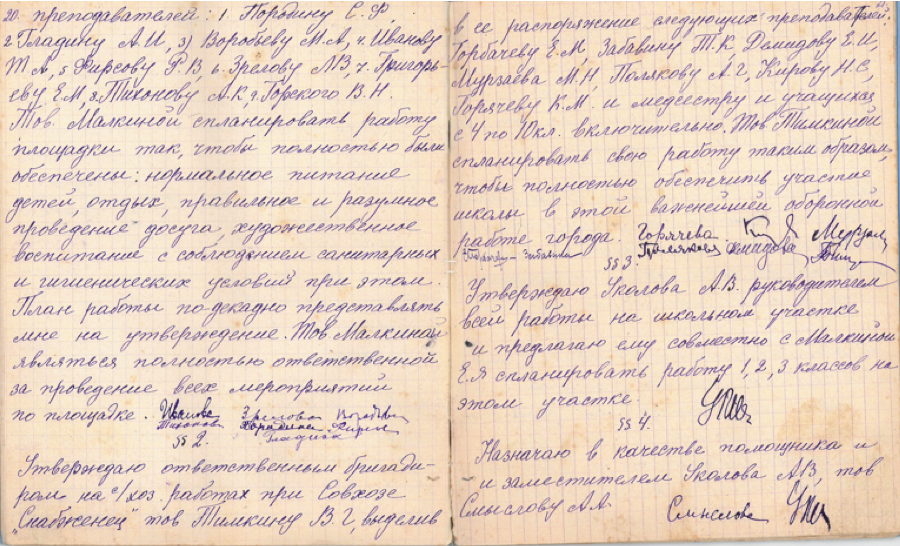 20. преподавателей: 1. Породину С.Ф.
2 Гладину А.И, 3) Воробьеву М.А, 4. Иванову
Т А, 5 Фирсову Р.В, 6. Зрелову Л В, 7. Григорь-
еву Е,М, 8. Тихонову А.К, 9. Горского В.Н.
Тов. Малкиной спланировать работу
площадки так, чтобы полностью были
обеспечены: нормальное питание
детей, отдых, правильное и разумное
проведение досуга, художественное
воспитание с соблюдением санитарных
и гигиенических условий при этом.
План работы по-декадно представлять
мне на утверждение. Тов Малкиной
являться полностью ответственной
за проведение всех мероприятий
по площадке. Иванова Зрелова Воробьев
Тихонова Гладина
§§ 2.
Утверждаю ответственным бригади-
ром на с/хоз. работах при Совхозе
"Снабженец" тов Тимкину В.Г, выделив
в ее распоряжение следующих преподавателей:
Горбачеву Е.М, Забавину Т.К Демидову Е.И,
Мурзаева М,Н, Полякову А.Г, Кирову Н.С,
Горячеву К.М. и медсестру и учащихся
с 4 по 10 кл. включительно. Тов Тимкиной
спланировать свою работу таким образом,
чтобы полностью обеспечить участие
школы в этой важнейшей оборонной
работе города. Горячева
Полякова Демидова
Забавина
§§ 3.
Утверждаю Уколова А.В. руководителем
всей работы на школьном участке
и предлагаю ему совместно с Малкиной
Е.Я спланировать работу 1, 2, 3 классов на
этом участке.
§§ 4.
Назначаю в качестве помощника и
и заместителем Уколова А,В, тов
Смыслову А А.
Смыслова